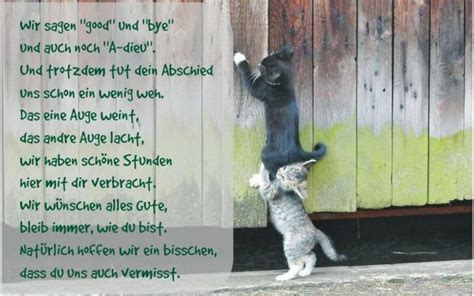 Wir sagen "good" und "bye"
und auch noch "A-dieu".
Und trotzdem tut dein Abschied
uns schon ein wenig weh.
Das eine Auge weint,
das andre Auge lacht,
wir haben schöne Stunden
hier mit dir verbracht.
Wir wünschen alles Gute,
bleib immer, wie du bist.
Natürlich hoffen wir ein bisschen,
dass du uns auch vermisst.